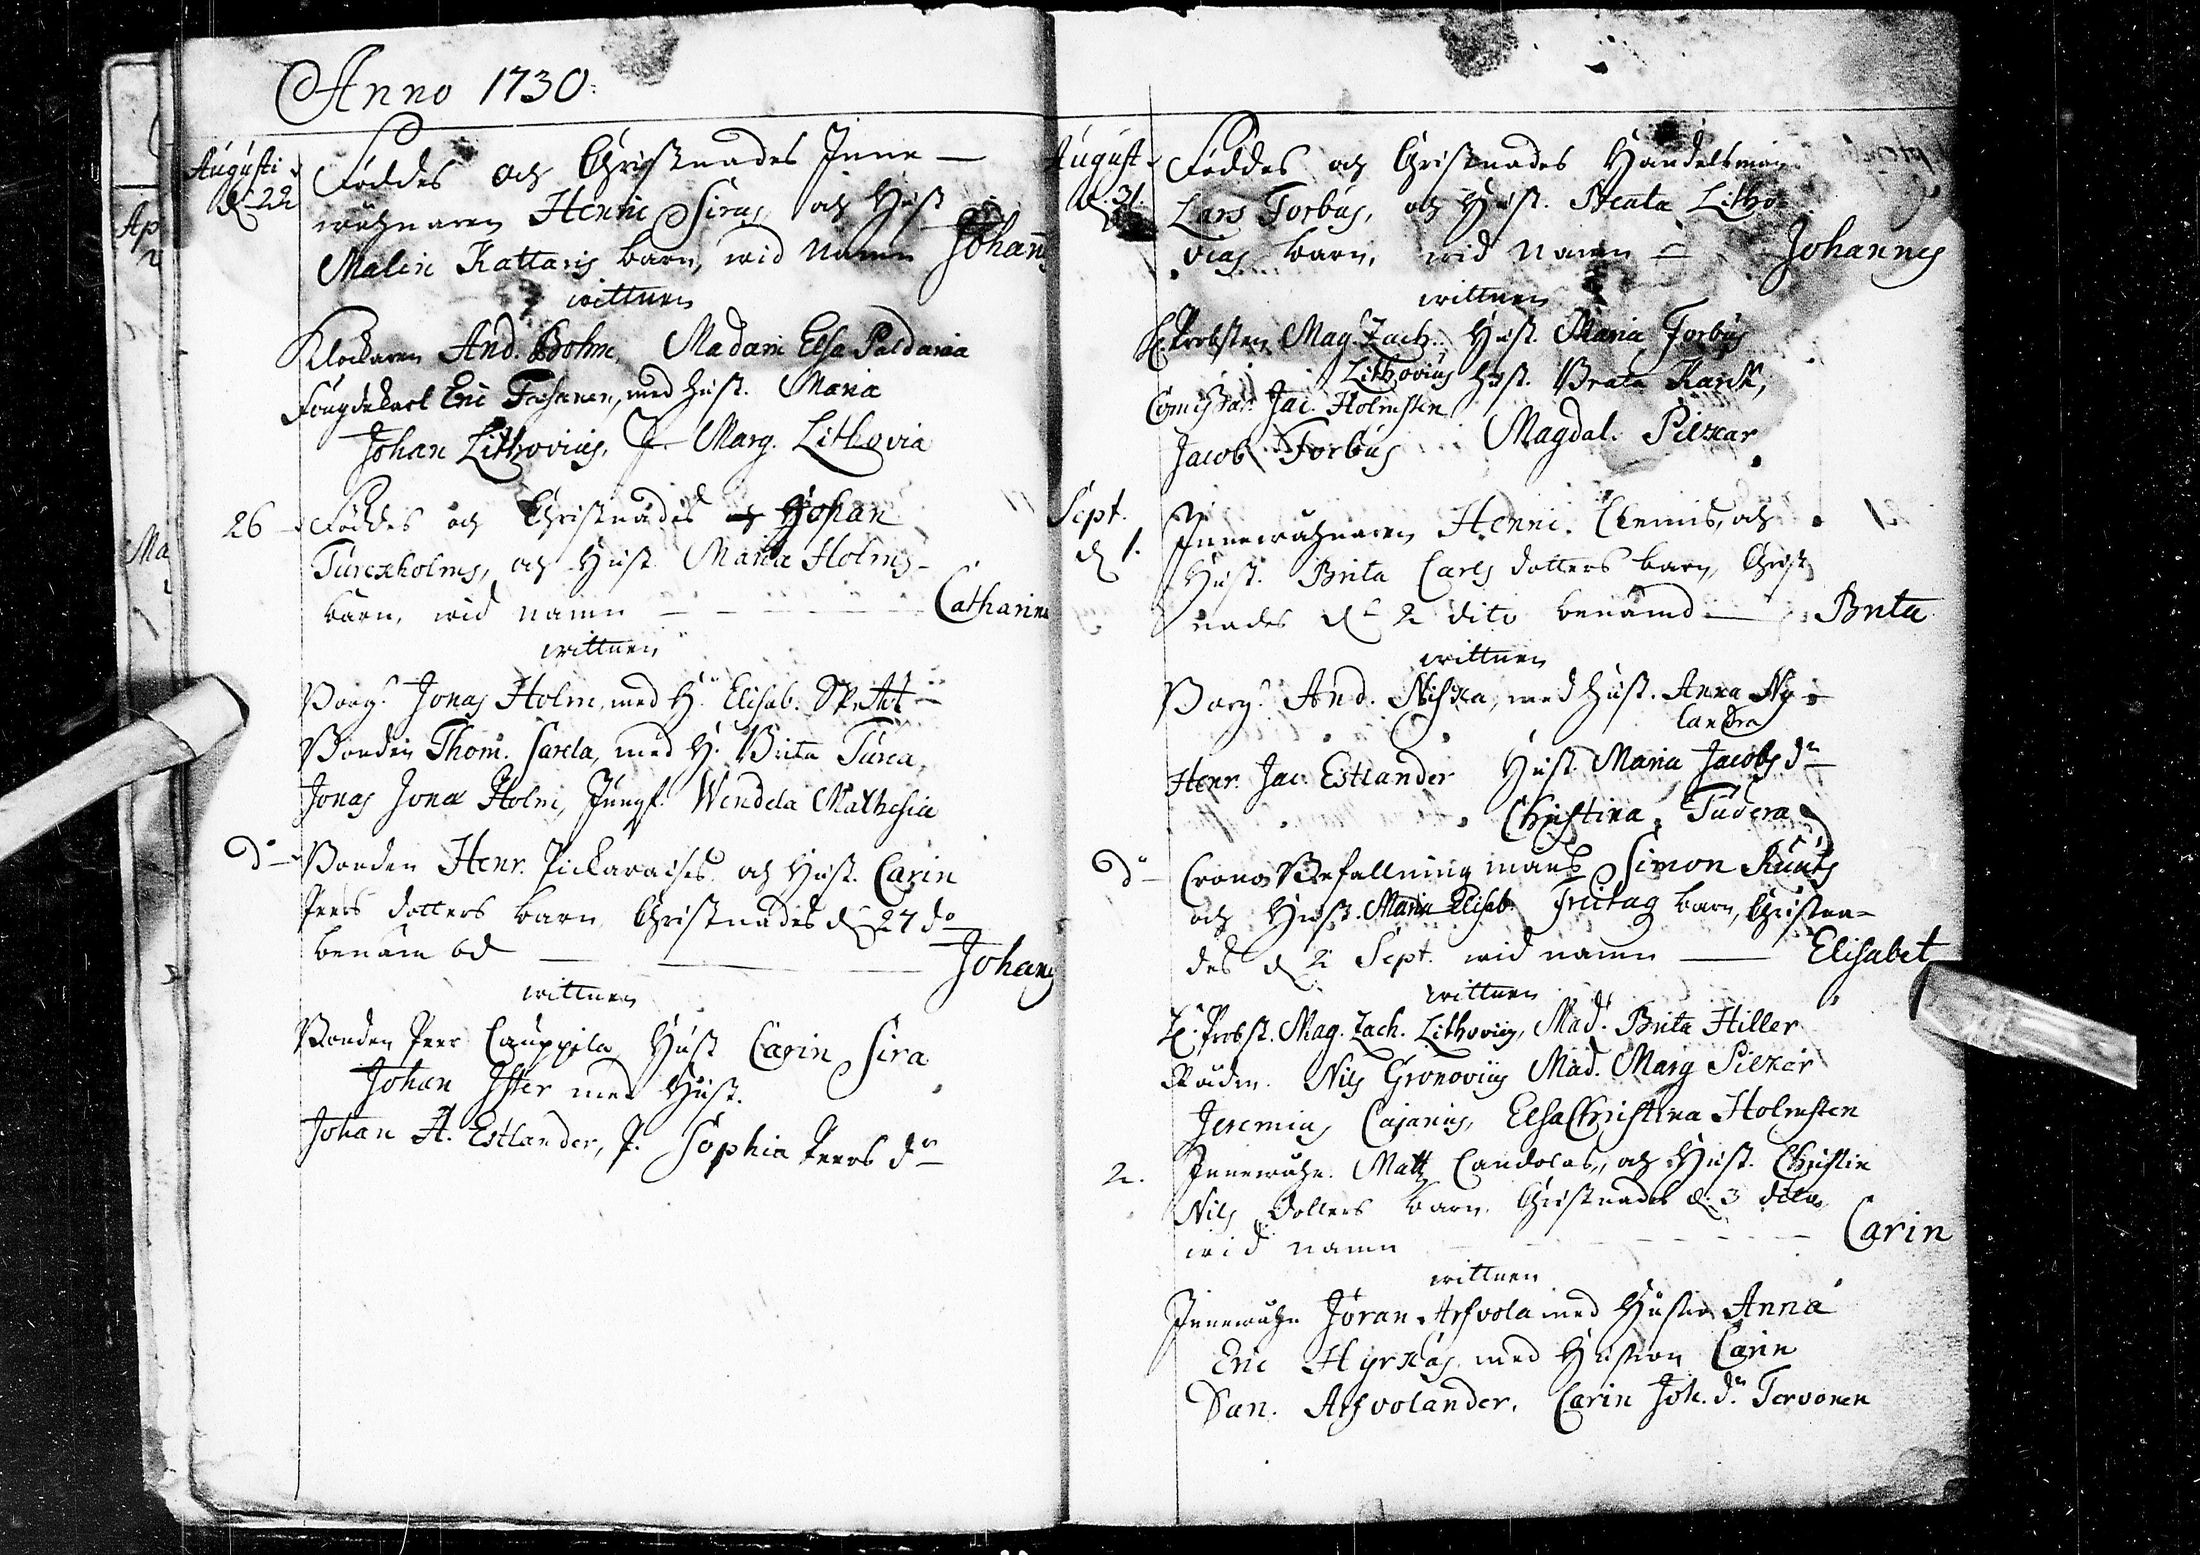 Anno 1730:
Augusti
d. 22
Föddes och Christnades Inne-
wåhnaren Henric Siras, och Hust
Malin Kattaris barn, wid namn Johannes
wittnen
Klockaren And. Bohm, Madam Elsa Paldania
Fougdekarl Eric Frosanen, med hust. Maria
Johan Lithovius, J. Marg. Lithovia
26 Föddes och Christnades Johan
Turcxholms, och Hust. Maria Holms
barn, wid namn Catharina
wittnen
Borg. Jonas Holm, med H. Elisab. Spett
Bonden Thom. Sarela, med H. Brita Turca,
Jonas Jonæ Holm, Jungf. Wendela Mathesia
do Bonden Henr. Pickaraises och Hust. Carin
Peers dotters barn Christnades d 27 do
benämbd Johannes
wittnen
Bonden Peer Cauppila, Hust Carin Sira
Johan Ister med Hust.
Johan H. Estlander, P. Sophia Peers dr
Ap
Ma
August
d. 31.
Föddes och Christnades Handelsman
Lars Forbus, och Hust. Beata Litho-
vias barn, wid namn Johannes
wittnen
H. Probsten Mag. Zach. Hust. Maria Forbus
Lithovius Hust. Brata Ranck,
Comissar. Jac. Holmsten
Jacob Forbus Magdal. Pilxar
Sept.
d 1. Innewåhnaren Henric. Clemis, och
Hust. Brita Carls dotters barn, Christ
nades d 2 dito benämd Brita
wittnen
Borg. And. Niska, med hust. Anna Ny-
landra
Henr. Jac. Estlander Hust Maria Jacobs dr
Christina Tudera
do Crono Befallningsmans Simon Kuuts
och Hust. Maria Elisab. Freitag barn, Christna-
des d 2 Sept. wid namn Elisabet
wittnen
H. Probst. Mag. Zach. Lithovius, Mad. Brita Hiller
Rådm. Nils Gronovius Mad. Marg Pilxar
Jeremias Cajanus, Elsa Christina Holmsten
2. Innewåhn. Matts Candolas, och Hust. Christin
Nils Dotters barn Christnades d. 3 dito
wid namn Carin
wittnen
Innewåhn Jöran Arfvola med Hustro Anna
Eric Hyrxäs med Hustron Carin
Dan. Arfvolander. Carin Joh. dr Tervonen